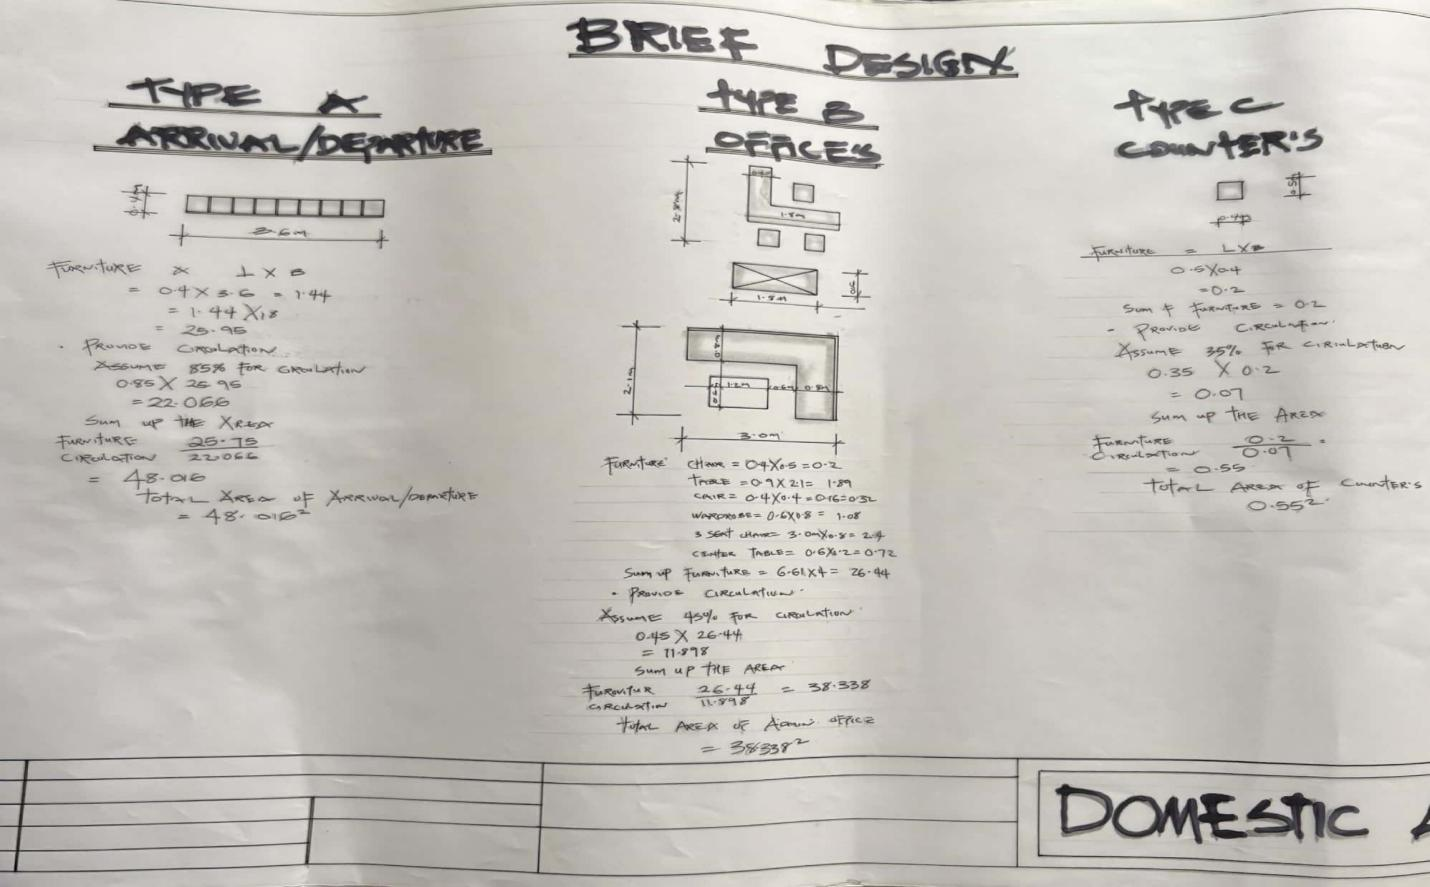 BRIEF DESIGN
TYPE A
ARRIVAL/DEPARTURE
3.6m
FURNITURE L X B
= 0.4 X 3.6 = 1.44
= 1.44 X 18
= 25.95
• PROVIDE CIRCULATION
ASSUME 85% FOR CIRCULATION
0.85 X 25.95
= 22.066
SUM UP THE AREA
FURNITURE 25.75
CIRCULATION 22.066
= 48.016
TOTAL AREA OF ARRIVAL/DEPARTURE
= 48.016²
TYPE B
OFFICE'S
1.8m
1.8m
2.1m
0.8m
1.2m
0.6m
0.8m
3.0m
FURNITURE CHAIR = 0.4X0.5=0.2
TABLE = 0.9X2.1= 1.89
CAIR= 0.4X0.4=0.16=0.32
WARDROBE= 0.6X0.8= 1.08
3 SEAT CHAIR= 3.0mX0.8= 2.4
CENTER TABLE= 0.6X1.2=0.72
SUM UP FURNITURE = 6.61X4= 26.44
• PROVIDE CIRCULATION
ASSUME 45% FOR CIRCULATION
0.45 X 26.44
= 11.898
SUM UP THE AREA
FURNITUR 26.44 = 38.338
CIRCULATION 11.898
TOTAL AREA OF ADMIN OFFICE
= 38.338²
TYPE C
COUNTER'S
FURNITURE = LXB
0.5X0.4
=0.2
SUM OF FURNITURE = 0.2
- PROVIDE CIRCULATION
ASSUME 35% FOR CIRCULATION
0.35 X 0.2
= 0.07
SUM UP THE AREA
FURNITURE 0.2 =
CIRCULATION 0.07
= 0.55
TOTAL AREA OF COUNTER'S
0.55²
DOMESTIC